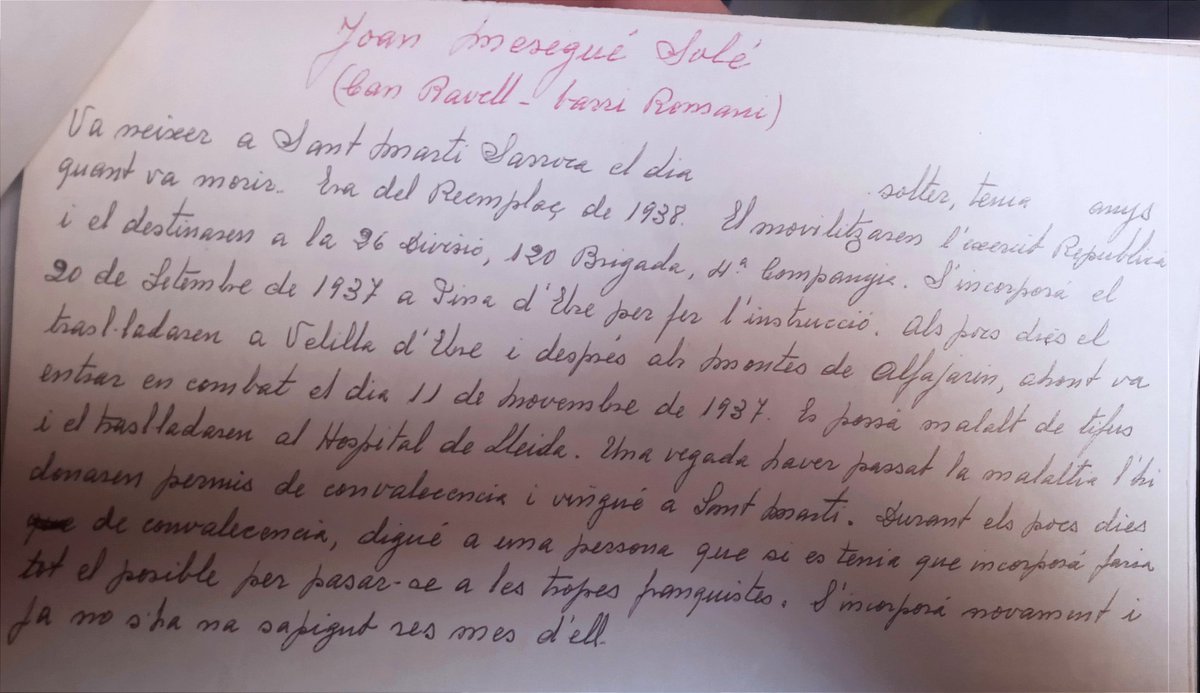 Joan Mesegué Solé
(Can Ravell - barri Romaní)
Va neixer a Sant Martí Sarroca el dia solter, tenia anys
quant va morir. Era del Reemplaç de 1938. El movilitzaren l'exercit Republica
i el destinaren a la 26 Divisió, 120 Brigada, 4ª Companyia. S'incorporá el
20 de Setembre de 1937 a Pina d'Ebre per fer l'instrucció. Als pocs dies el
trasl·ladaren a Velilla d'Ebre i després als Montes de Alfajarin, ahont va
entrar en combat el dia 11 de Novembre de 1937. Es possá malalt de tifus
i el trasl·ladaren al Hospital de Lleida. Una vegada haver passat la malaltia l'hi
donaren permis de convalecencia i vingué a Sant Martí. Durant els pocs dies
de convalecencia, digué a una persona que si es tenia que incorporá faria
tot el posible per pasar-se a les tropes franquistes. S'incorporá novament i
ja no s'ha na sapigut res mes d'ell.